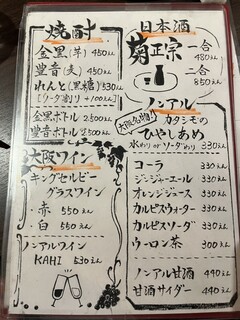 焼酎
金黒(芋) 450えん
豊音(麦) 450えん
れんと(黒糖) 530えん
(ソーダ割り +100えん)
金黒ボトル 2500えん
豊音ボトル 2500えん
大阪ワイン
キングセルビー
グラスワイン
・赤 550えん
・白 550えん
ノンアルワイン
KAHI 530えん
日本酒
菊正宗
一合
480えん
二合
850えん
ノンアル
大阪名物!!
カタシモの
ひやしあめ
水わり or ソーダわり 330えん
コーラ 330えん
ジンジャーエール 330えん
オレンジジュース 330えん
カルピスウォーター 330えん
カルピスソーダ 330えん
ウーロン茶 300えん
ノンアル甘酒 440えん
甘酒サイダー 440えん